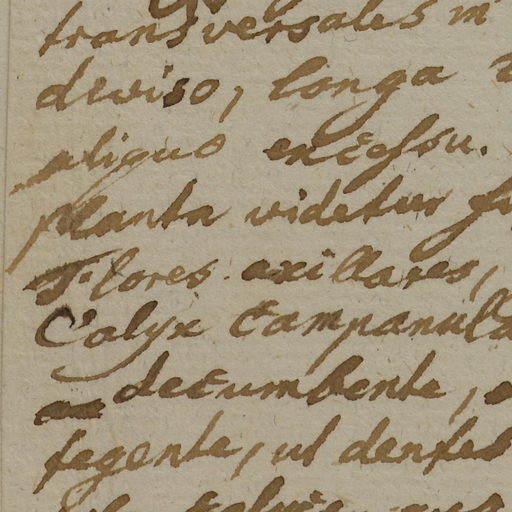 transversales in
deviso, longa
aliquo excessu.
planta videtur
Flores axillares,
Calyx Campanula
decumbente,
tegente, ut dentes